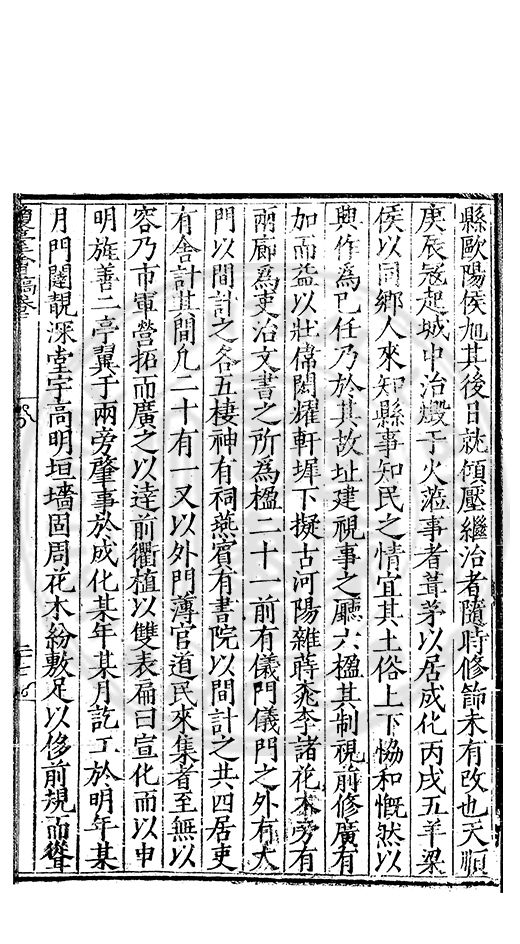 縣歐陽侯旭其後日就傾壓繼治者隨時修飾未有改也天順
庚辰冦起城中治燬于火蒞事者葺茅以居成化丙戌五羊梁
侯以同鄉人來知縣事知民之情宜其土俗上下恊和慨然以
興作爲巳任乃於其故址建視事之廳六楹其制視前修廣有
加而益以壯偉閎燿軒墀下擬古河陽雜蒔桃李諸花木旁有
兩廊爲吏治文書之所爲楹二十一前有儀門儀門之外有大
門以間計之各五棲神有祠燕賓有書院以間計之共四居吏
有舍計其間凡二十有一又以外門薄官道民來集者至無以
容乃市軍營拓而廣之以達前衢植以雙表扁曰宣化而以申
明旌善二亭翼于兩旁肇事於成化某年某月訖工於明年某
月門闥靚深堂宇高明垣墻固周花木紛敷足以侈前規而聳